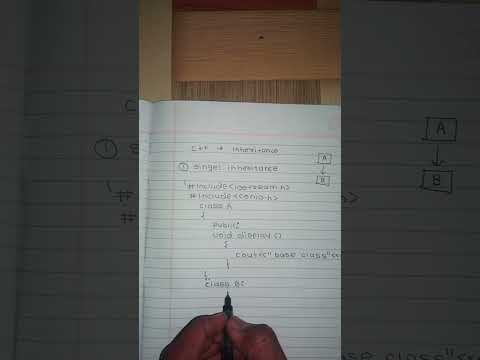 C++ → inheritance
① singel inheritance
A
B
#include<iostream.h>
#include<conio.h>
class A
{
Public:
void display()
{
cout<<"base class"<<
}
};
class B: